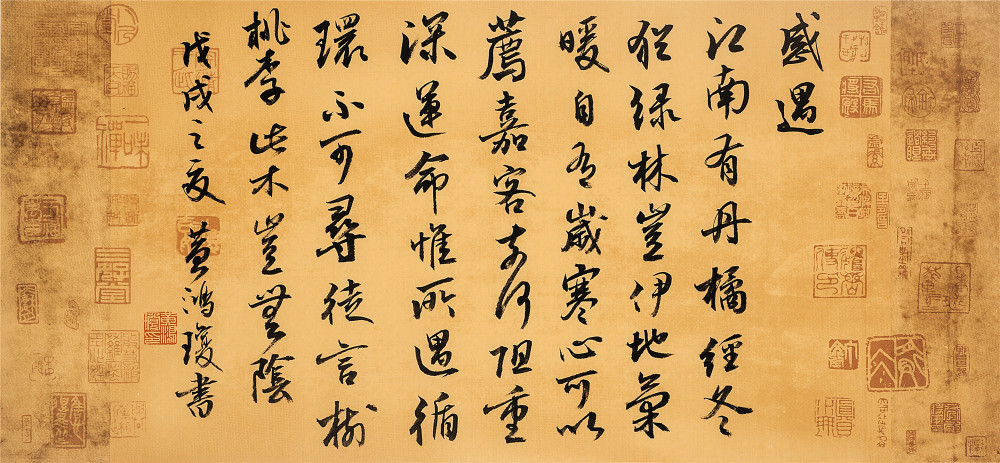 感遇
江南有丹橘經冬
猶綠林豈伊地氣
暖自有歲寒心可以
薦嘉客奈何阻重
深運命惟所遇循
環不可尋徒言樹
桃李此木豈無陰
戊戌之夏 黄鴻瓊書